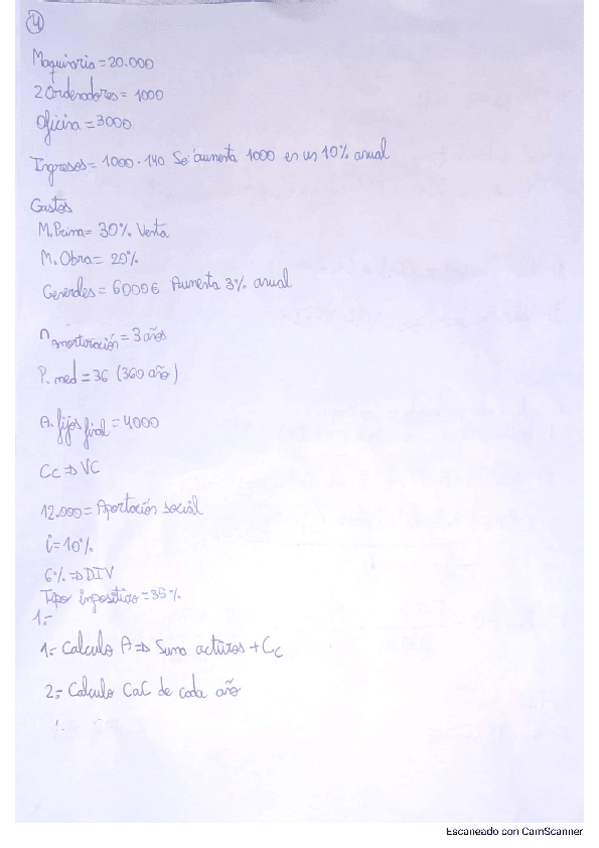 4
Maquinaria = 20.000
2 Ordenadores = 1000
Oficina = 3000
Ingresos = 1000 · 140 Se aumenta 1000 en un 10% anual
Gastos
M. Prima = 30% Venta
M. Obra = 20%
Generales = 6000€ Aumenta 3% anual
n amortización = 3 años
P. med = 36 (360 año)
A. fijos final = 4000
Cc ⇒ VC
12.000 = Aportación social
i = 10%
6% ⇒ DIV
Tipo impositivo = 35%
1.-
1.- Calculo A ⇒ Suma activos + Cc
2.- Calculo CaC de cada año
Escaneado con CamScanner